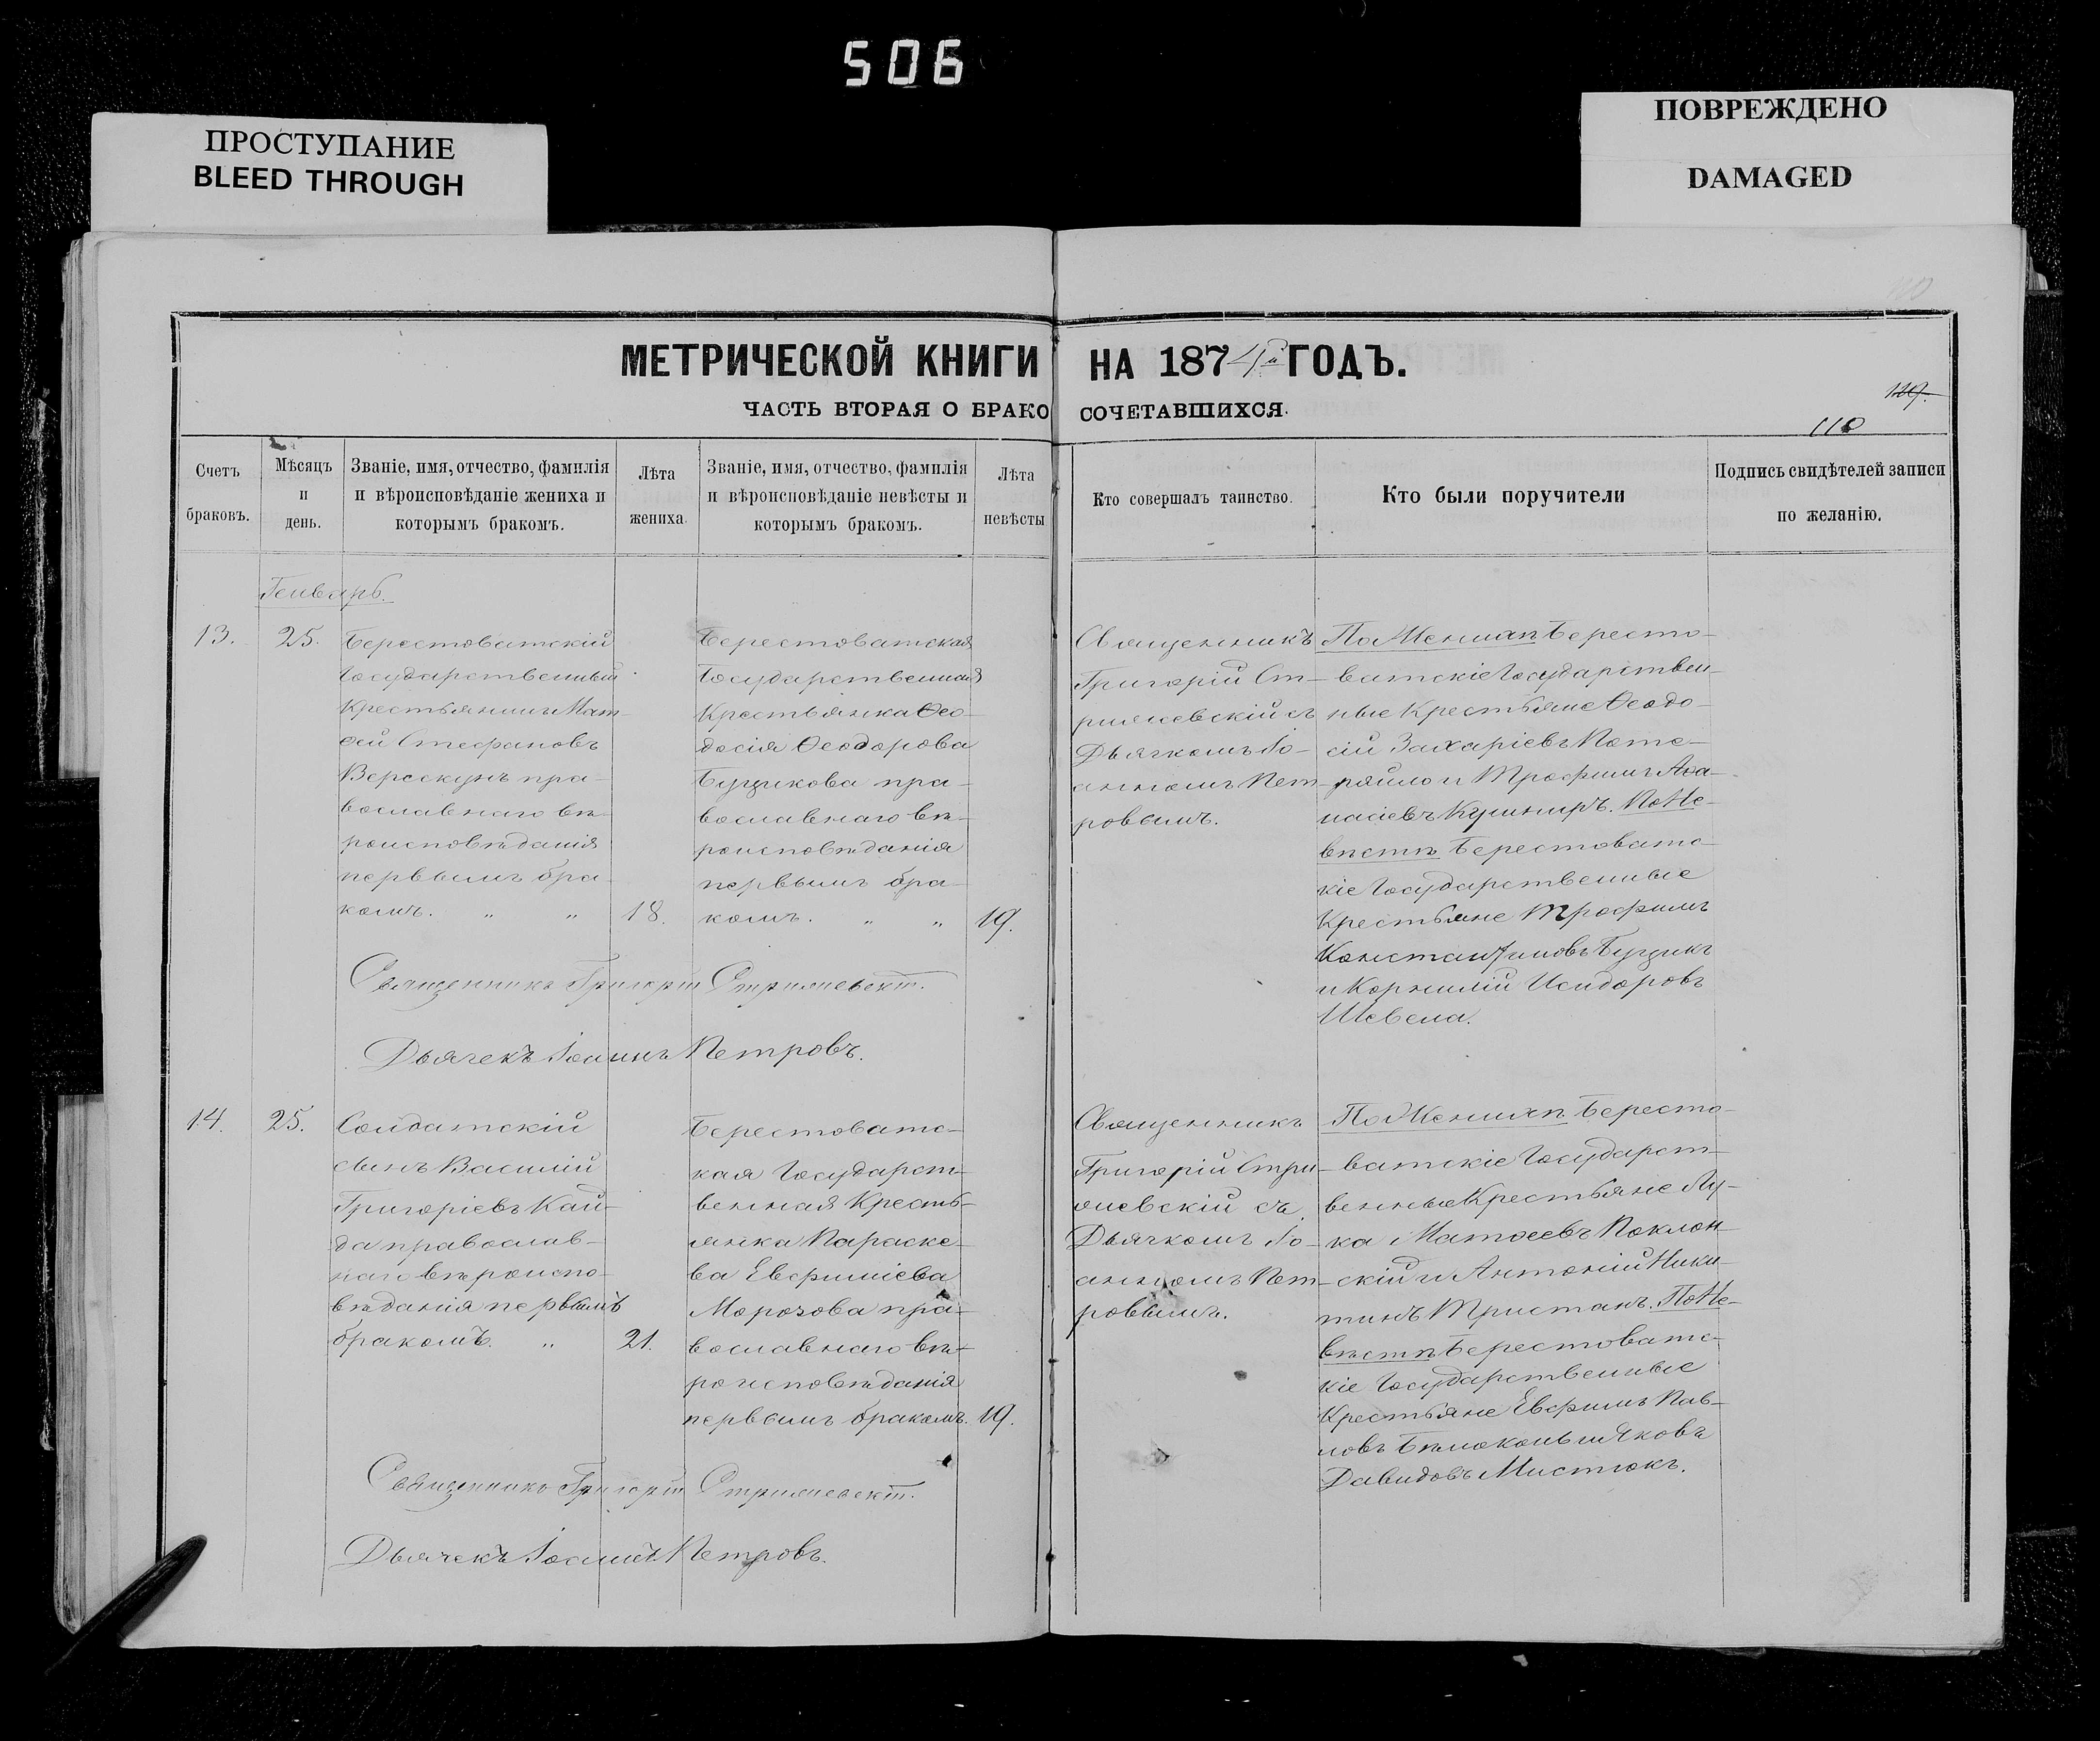 506
ПРОСТУПАНИЕ
BLEED THROUGH
ПОВРЕЖДЕНО
DAMAGED
МЕТРИЧЕСКОЙ КНИГИ НА 1874й ГОДЪ.
ЧАСТЬ ВТОРАЯ О БРАКОСОЧЕТАВШИХСЯ.
119.
110
Счетъ
браковъ.
Мѣсяцъ
и
день.
Званіе, имя, отчество, фамилія
и вѣроисповѣданіе жениха и
которымъ бракомъ.
Лѣта
жениха.
Званіе, имя, отчество, фамилія
и вѣроисповѣданіе невѣсты и
которымъ бракомъ.
Лѣта
невѣсты
Кто совершалъ таинство.
Кто были поручители
Подпись свидѣтелей записи
по желанію.
Генварь.
13.
25.
Берестоватскій
Государственный
Крестьянинъ Мат-
ѳей Стефановъ
Верескунъ пра-
вославнаго вѣ-
роисповѣданія
первымъ бра-
комъ. " "
18.
Берестоватская
Государственная
Крестьянка Ѳео-
досія Ѳеодорова
Бугрикова пра-
вославнаго вѣ-
роисповѣданія
первымъ бра-
комъ. " "
19.
Священникъ
Григорій Ст-
рижевскій съ
Дьячкомъ Іо-
анномъ Пет-
ровымъ.
По Женихѣ Бересто-
ватскіе Государствен-
ные Крестьяне Ѳеодо-
сій Захаріевъ Поте-
ряйло и Трофимъ Аѳа-
насіевъ Кушниръ. По Не-
вѣстѣ Берестоватс-
кіе Государственные
Крестьяне Трофимъ
Константиновъ Бугрикъ
и Корнилій Исидоровъ
Шевела.
Священникъ Григорій
Дьячекъ Іоаннъ Петровъ.
14.
25.
Солдатскій
сынъ Василій
Григоріевъ Кай-
да православ-
наго вѣроиспо-
вѣданія первымъ
бракомъ. "
21.
Берестоватс-
кая Государст-
венная Кресть-
янка Параске-
ва Евфиміева
Морозова пра-
вославнаго вѣ-
роисповѣданія
первымъ бракомъ.
19.
Священникъ
Григорій Стри-
жевскій съ
Дьячкомъ Іо-
анномъ Пет-
ровымъ.
По Женихѣ Бересто-
ватскіе Государст-
венные Крестьяне Лу-
ка Матѳеевъ Поклон-
скій и Антоній Ники-
тинъ Тристанъ. По Не-
вѣстѣ Берестоватс-
кіе Государственные
Крестьяне Евфимъ Пав-
ловъ Бѣлоконь и Яковъ
Давидовъ Мистюкъ.
Священникъ Григорій
Дьячекъ Іоаннъ Петровъ.